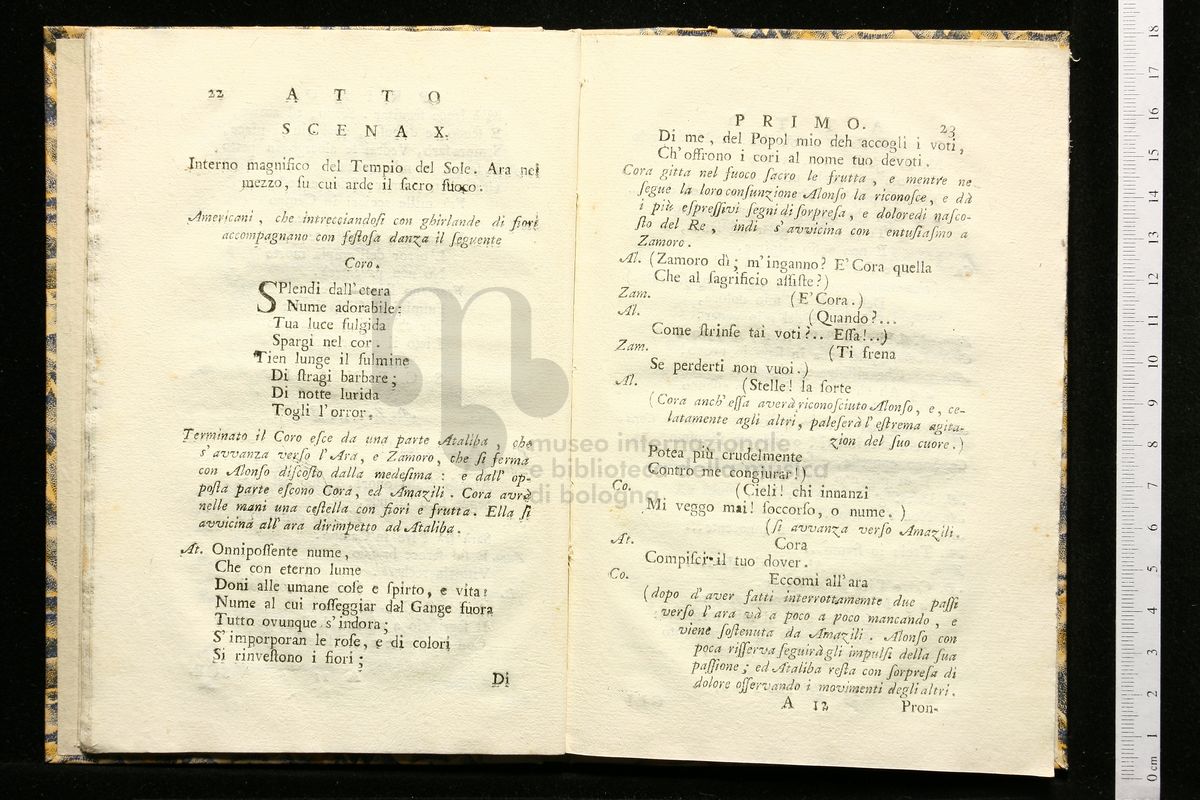 22 ATTO
SCENA X.
Interno magnifico del Tempio del Sole. Ara nel
mezzo, ſu cui arde il ſacro ſuoco.
Americani, che intrecciandoſi con ghirlande di fiori
accompagnano con feſtoſa danza il ſeguente
Coro.
SPlendi dall'etera
Nume adorabile:
Tua luce fulgida
Spargi nel cor.
Tien lunge il fulmine
Di ſtragi barbare;
Di notte lurida
Togli l'orror.
Terminato il Coro eſce da una parte Ataliba, che
s'avvanza verſo l'Ara, e Zamoro, che ſi ferma
con Alonſo diſcoſto dalla medeſima: e dall' op-
poſta parte eſcono Cora, ed Amazili. Cora avrà
nelle mani una ceſtella con fiori e frutta. Ella ſi
avvicina all' ara dirimpetto ad Ataliba.
At. Onnipoſſente nume,
Che con eterno lume
Doni alle umane coſe e ſpirto, e vita:
Nume al cui roſſeggiar dal Gange fuora
Tutto ovunque s'indora;
S'imporporan le roſe, e di colori
Si rinveſtono i fiori;
Di
PRIMO. 23
Di me, del Popol mio deh accogli i voti,
Ch'offrono i cori al nome tuo devoti.
Cora gitta nel fuoco ſacro le frutta, e mentre ne
ſegue la loro conſunzione Alonſo la riconoſce, e dà
i più eſpreſſivi ſegni di ſorpreſa, e dolore di naſco-
ſto del Re, indi s'avvicina con entuſiaſmo a
Zamoro.
Al. (Zamoro dì; m'inganno? E' Cora quella
Che al ſagrificio aſſiſte?)
Zam. (E' Cora.)
Al. (Quando?...
Come ſtrinſe tai voti?.. Eſſa!..)
Zam. (Ti frena
Se perderti non vuoi.)
Al. (Stelle! la ſorte
(Cora anch' eſſa averà riconoſciuto Alonſo, e, ce-
latamente agli altri, paleſerà l'eſtrema agita-
zion del ſuo cuore.)
Potea più crudelmente
Contro me congiurar!)
Co. (Cieli! chi innanzi
Mi veggo mai! ſoccorſo, o nume.)
(ſi avvanza verſo Amazili.
At. Cora
Compiſci il tuo dover.
Co. Eccomi all'ara
(dopo d'aver fatti interrottamemte due paſſi
verſo l'ara và a poco a poco mancando, e
viene ſoſtenuta da Amazili. Alonſo con
poca riſſerva ſeguirà gli impulſi della ſua
paſſione; ed Ataliba reſta con ſorpreſa di
dolore oſſervando i movimenti degli altri.
A 12 Pron-
museo internazionale
e biblioteca della musica
di bologna
0 cm 1 2 3 4 5 6 7 8 9 10 11 12 13 14 15 16 17 18